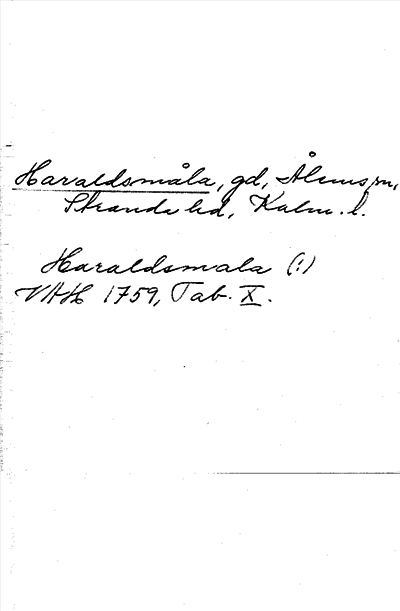 Haraldsmåla, gd, Ålems sn,
Stranda hd, Kalm. l.
Haraldsmala (!)
VAH 1759, Tab. X.